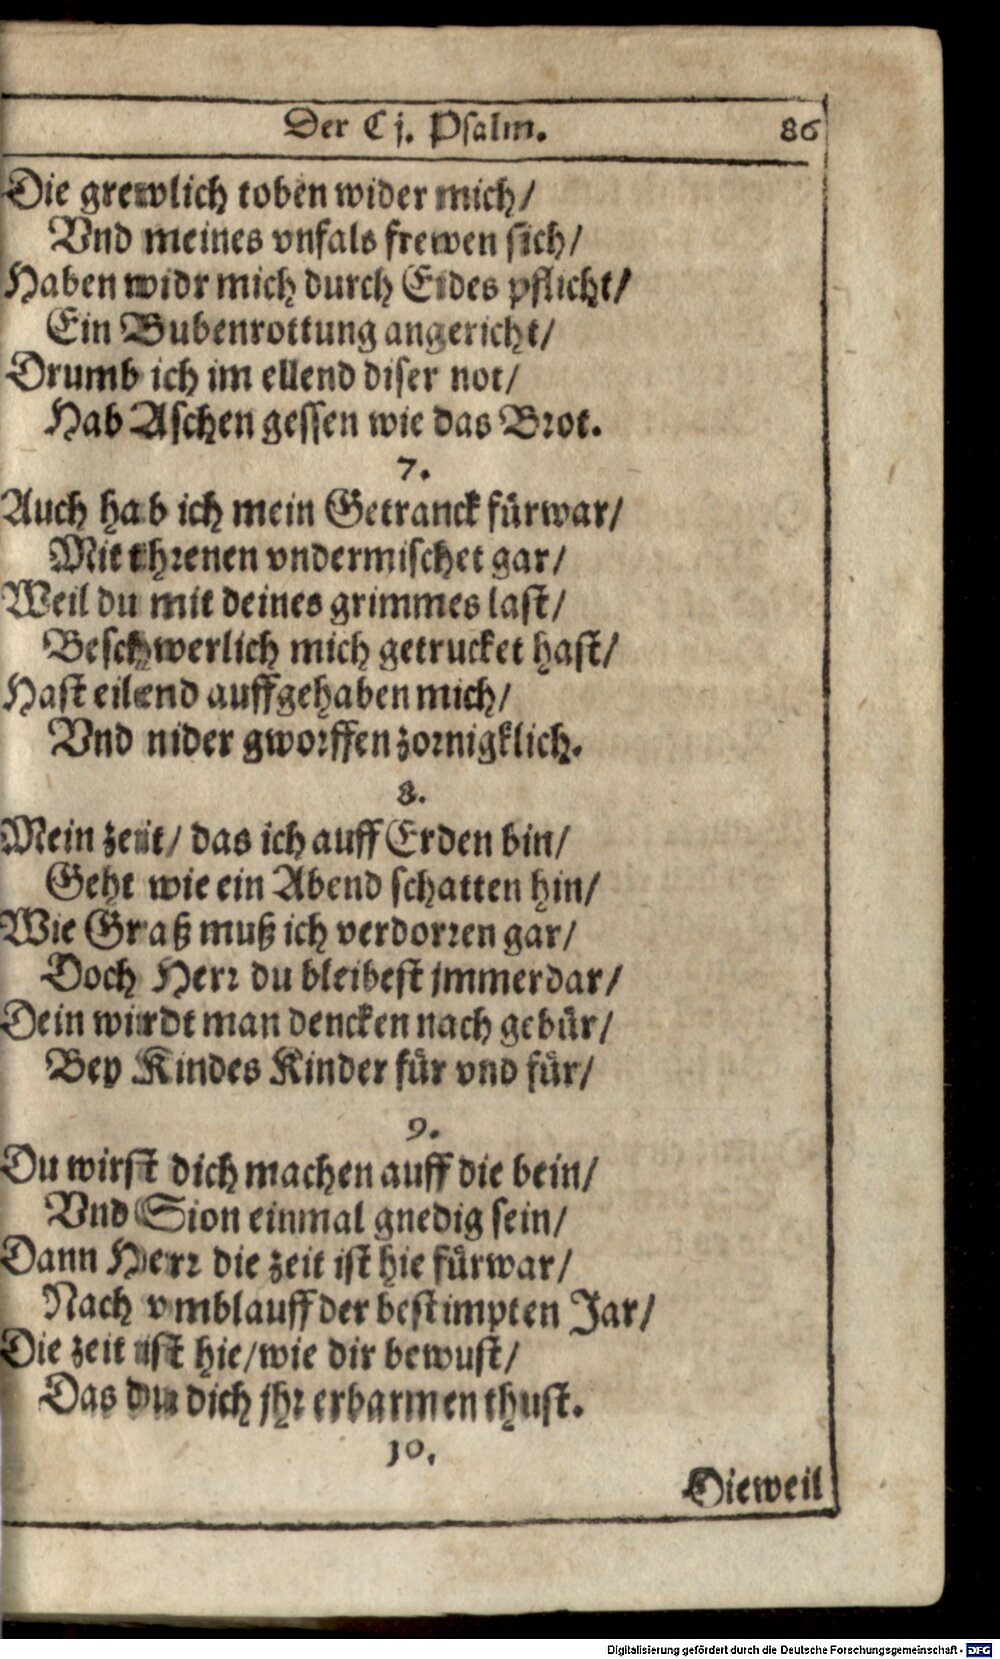 Der Cj. Psalm. 86
Die grewlich toben wider mich/
Vnd meines vnfals frewen sich/
Haben widr mich durch Eides pflicht/
Ein Bubenrottung angericht/
Drumb ich im ellend diser not/
Hab Aschen gessen wie das Brot.
7.
Auch hab ich mein Getranck fürwar/
Mit threnen vndermischet gar/
Weil du mit deines grimmes last/
Beschwerlich mich getrucket hast/
Hast eilend auffgehaben mich/
Vnd nider gworffen zornigklich.
8.
Mein zeit/ das ich auff Erden bin/
Geht wie ein Abend schatten hin/
Wie Graß muß ich verdorren gar/
Doch Herr du bleibest jmmerdar/
Dein wirdt man dencken nach gebür/
Bey Kindes Kinder für vnd für/
9.
Du wirst dich machen auff die bein/
Vnd Sion einmal gnedig sein/
Dann Herr die zeit ist hie fürwar/
Nach vmblauff der bestimpten Jar/
Die zeit ist hie/wie dir bewust/
Das du dich jhr erbarmen thust.
10.
Dieweil
Digitalisierung gefördert durch die Deutsche Forschungsgemeinschaft - DFG